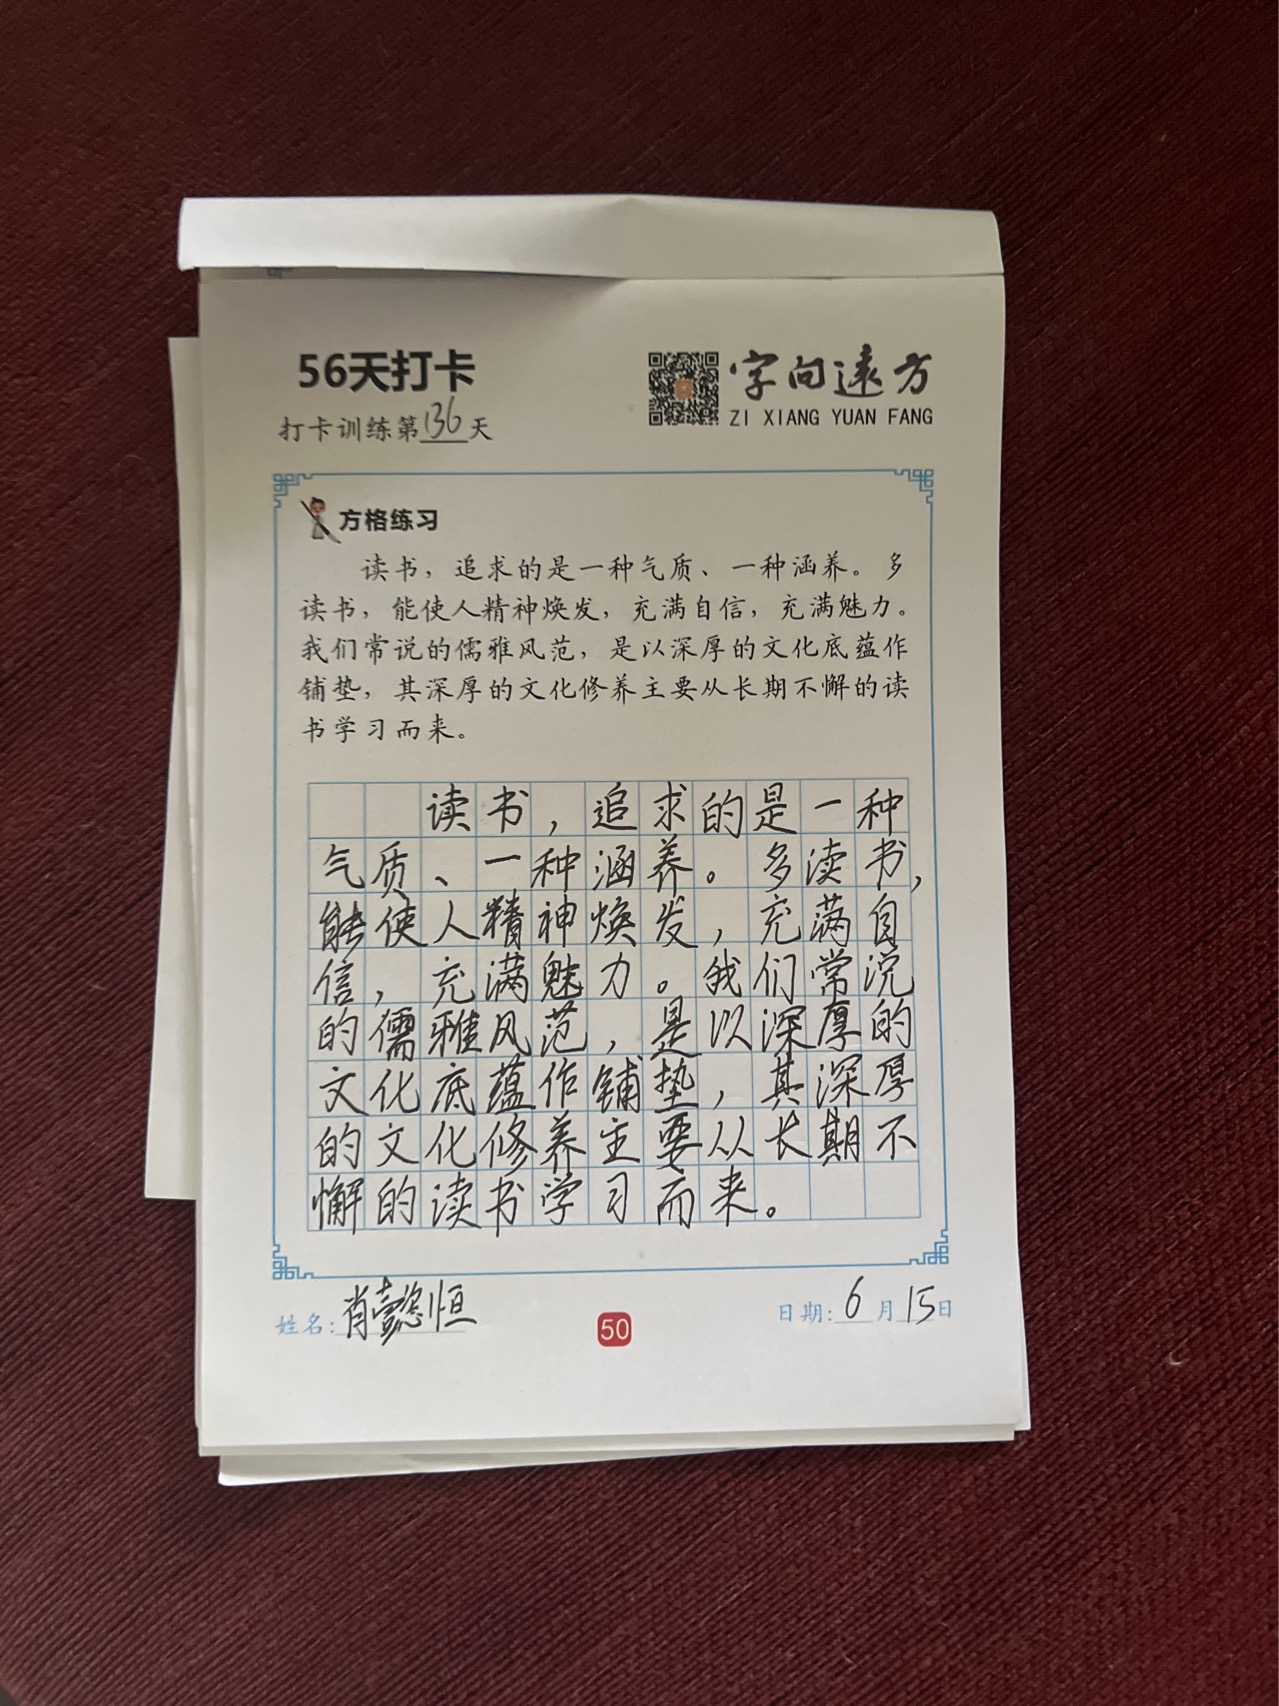 56天打卡
字向远方
ZI XIANG YUAN FANG
打卡训练第136天
方格练习
读书，追求的是一种气质、一种涵养。多
读书，能使人精神焕发，充满自信，充满魅力。
我们常说的儒雅风范，是以深厚的文化底蕴作
铺垫，其深厚的文化修养主要从长期不懈的读
书学习而来。
读书，追求的是一种
气质、一种涵养。多读书，
能使人精神焕发，充满自
信，充满魅力。我们常说
的儒雅风范，是以深厚的
文化底蕴作铺垫，其深厚
的文化修养主要从长期不
懈的读书学习而来。
姓名：肖懿恒
50
日期：6月15日